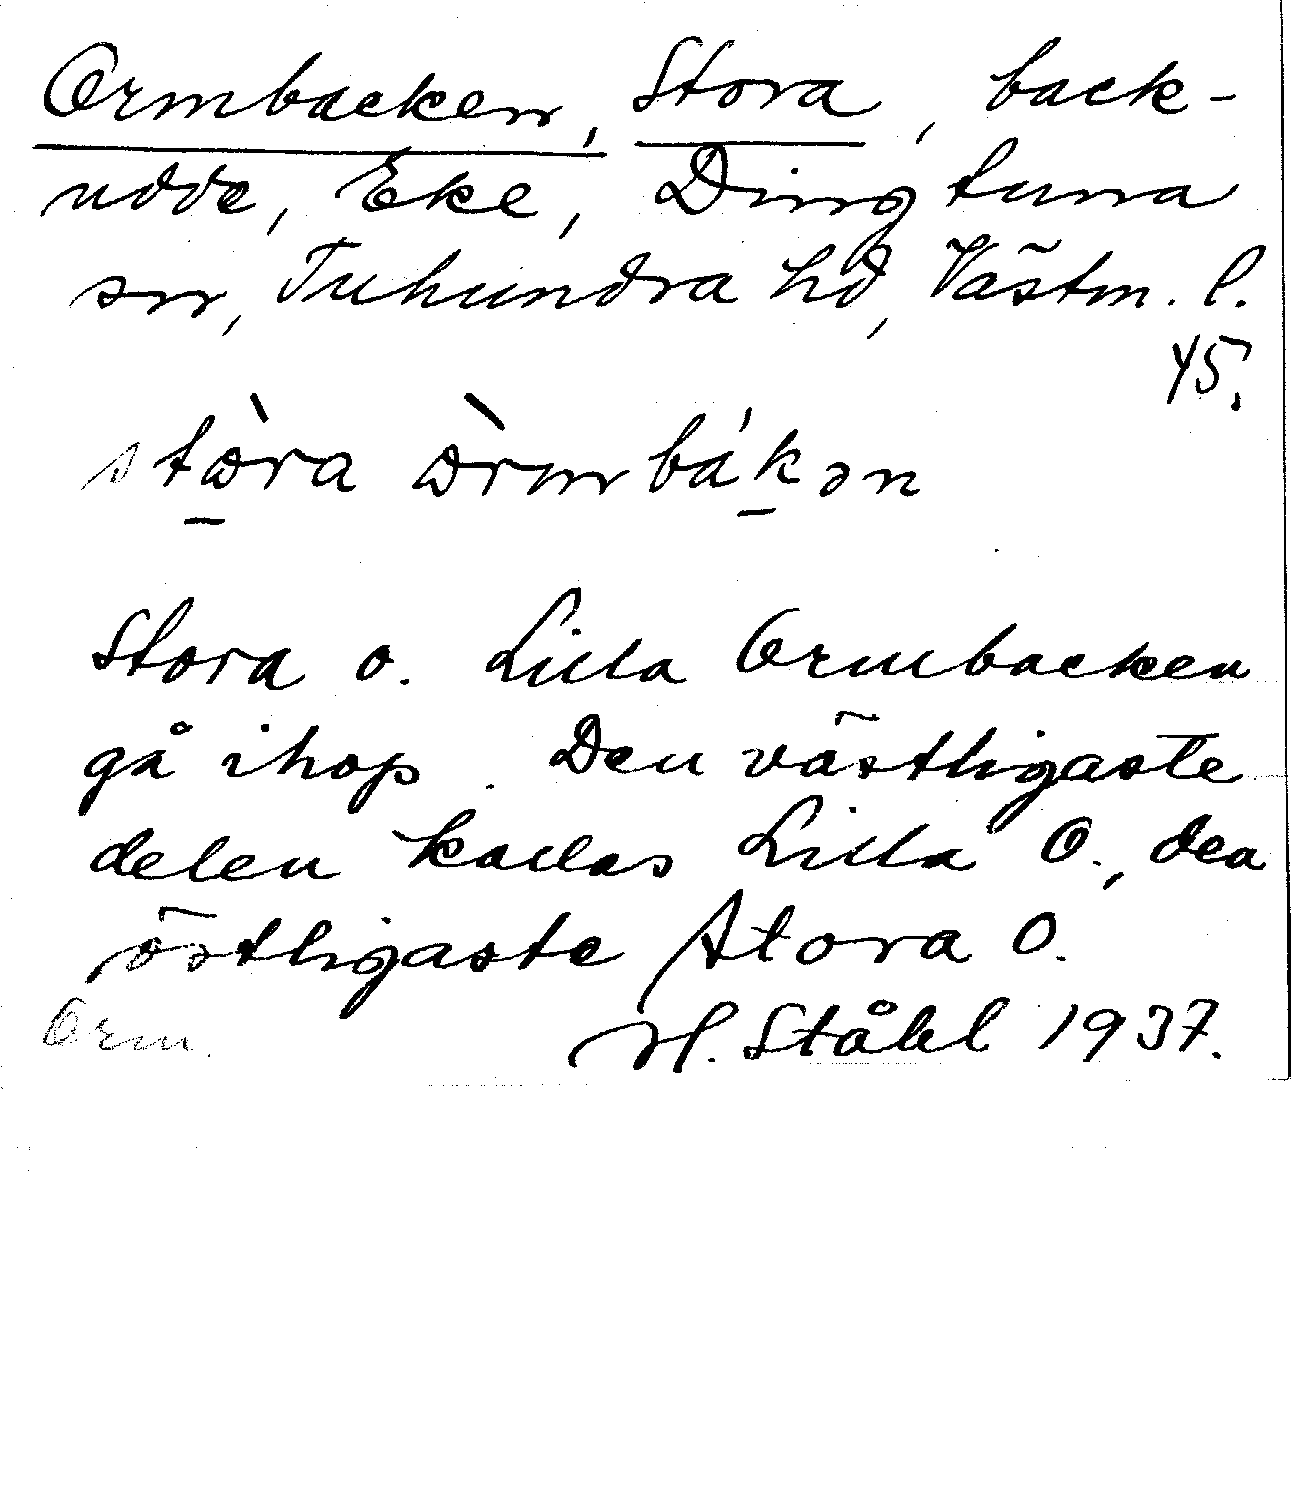 Ormbacken, Stora, back-
udde, Eke, Dingtuna
sn, Tuhundra hd, Västm. l.
45.
stɷ̀ra ɷ̀rmbákən
Stora o. Lilla Ormbacken
gå ihop. Den västligaste
delen kallas Lilla O., den
östligaste Stora O.
Orm.
H. Ståhl 1937.